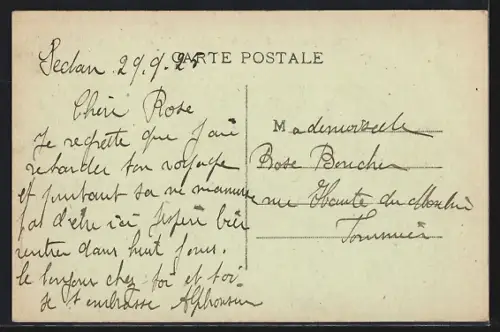 CARTE POSTALE
Sedan 29.9.25
Chère Rose
Je regrette que j'ai
retarder ton voyage
et pourtant sa ne m'amuse
pas d'être ici j'espère bien
rentrer dans huit jours.
le bonjour chez toi et toi
je t'embrasse Alphonsine
Mademoiselle
Rose Boucher
rue Haute du Moulin